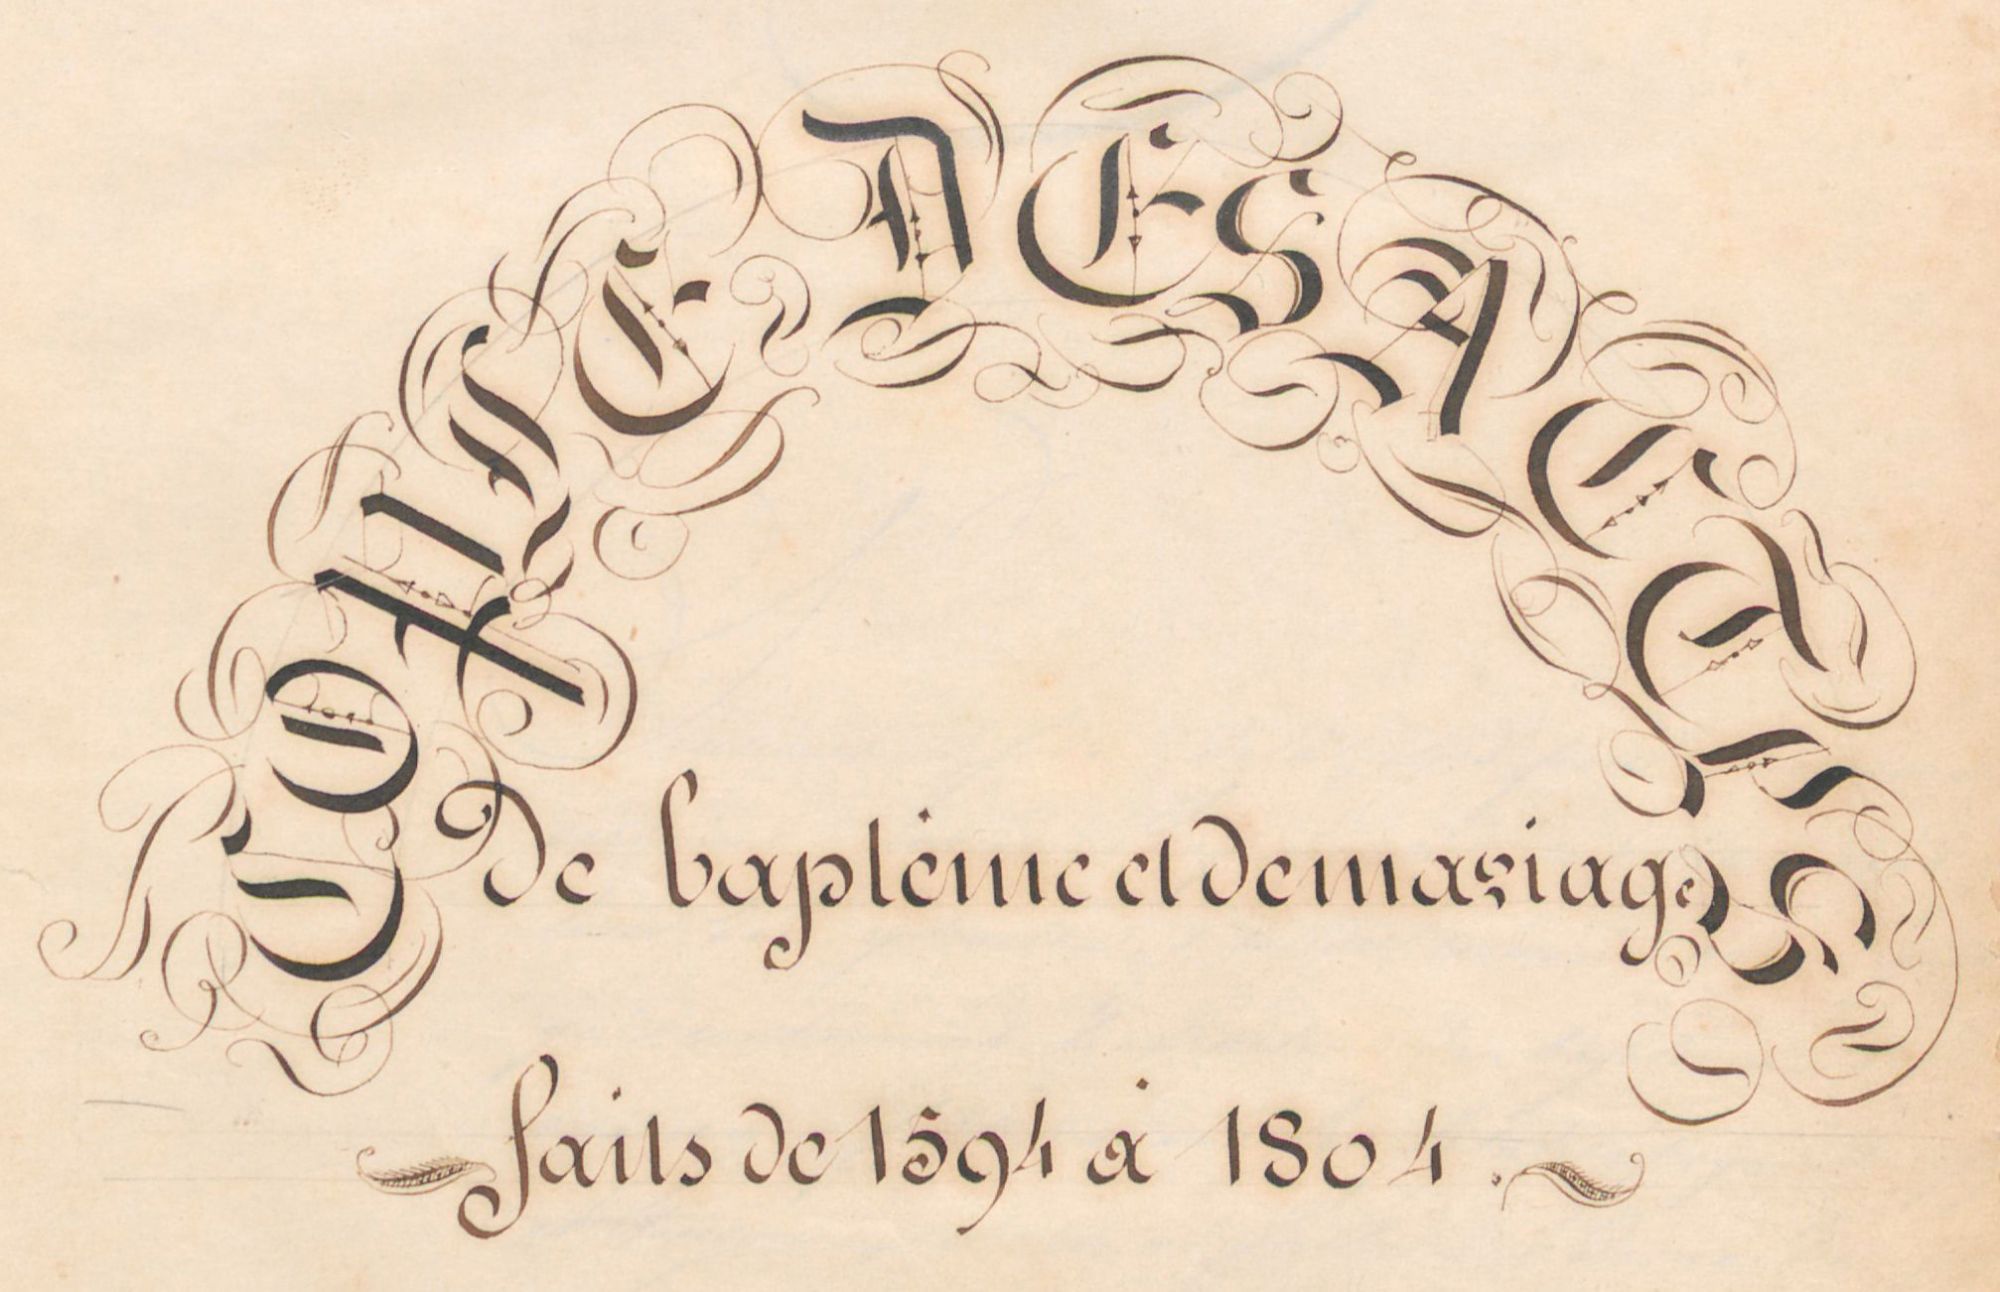 COPIE DES ACTES
de baptême et de mariage
faits de 1594 à 1804.